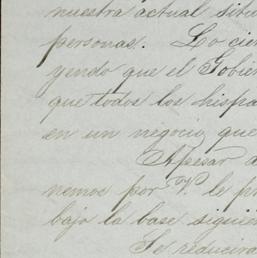 nuestra actual situ
personas. Lo cier
yendo que el Gobier
que todos los hispa
en un negocio, que
Apesar d
nemos por V. le p
bajo la base siguie
Se reducira